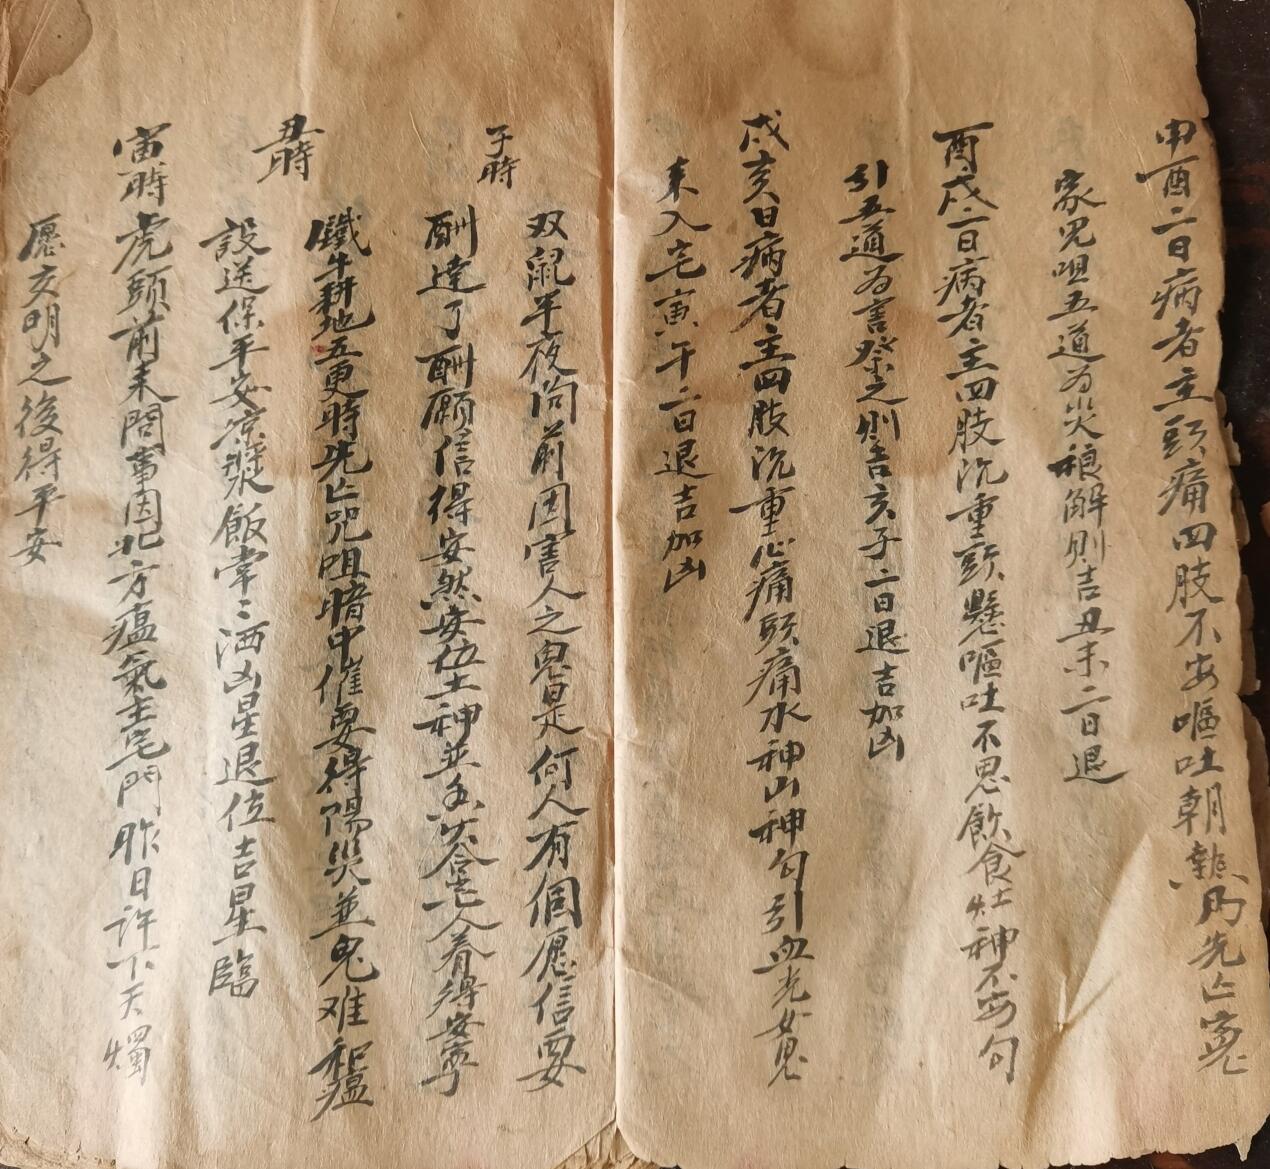 申酉二日病者主頭痛四肢不安嘔吐朝熱內先亡冤
家児咀五道为災禳解則吉丑未二日退
酉戌二日病者主四肢沉重頭懸嘔吐不思飲食灶神不安勾
引五道为害祭之則吉亥子二日退吉加凶
戌亥日病者主四肢沉重心痛頭痛水神山神勾引血光女鬼
来入宅寅午二日退吉加凶
子時
双鼠半夜尚前因害人之鬼是何人有個愿信要
酬達了酬願信得安然安位土神並 合宅人眷得安寧
丑時
鐵牛耕地五更時先亡咒咀暗中催要得陽災並鬼难 瘟
設送保平安凉漿飯常〻洒凶星退位吉星臨
寅時虎頭前来問事因北方瘟氣主宅門昨日許下天燭
愿亥明之後得平安